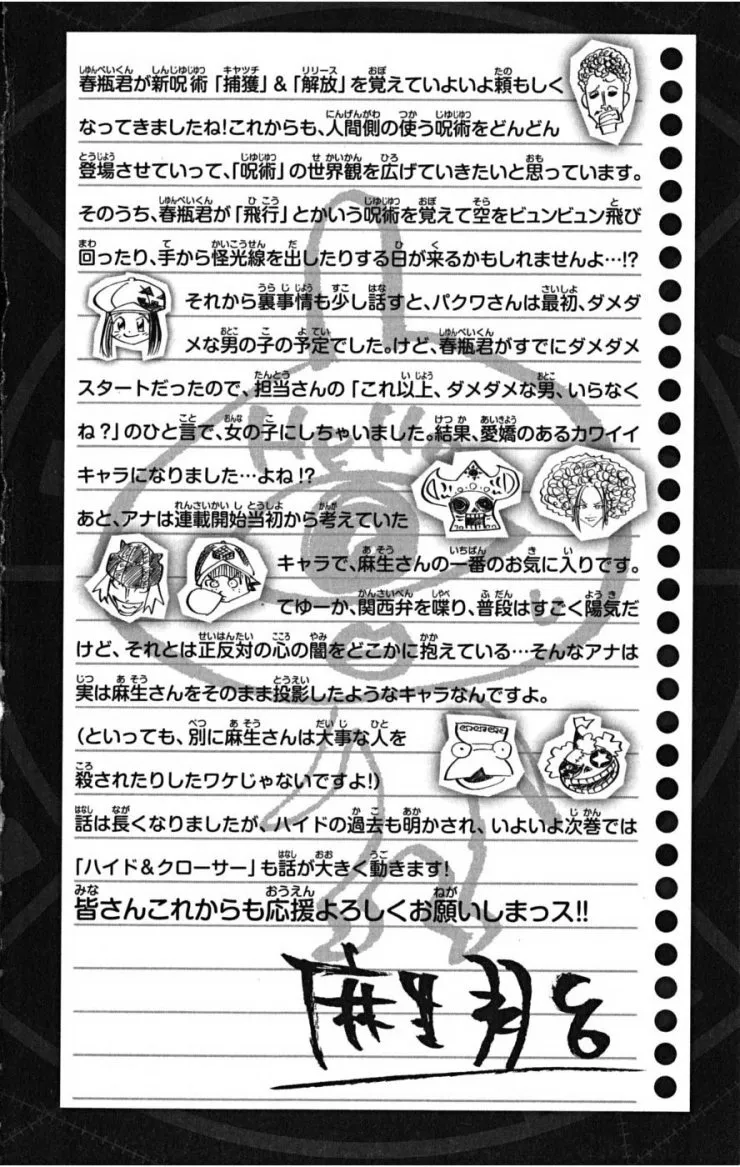 春瓶君が新呪術「捕獲」&「解放」を覚えていよいよ頼もしく
なってきましたね!これからも、人間側の使う呪術をどんどん
登場させていって、「呪術」の世界観を広げていきたいと思っています。
そのうち、春瓶君が「飛行」とかいう呪術を覚えて空をビュンビュン飛び
回ったり、手から怪光線を出したりする日が来るかもしれませんよ…!?
それから裏事情も少し話すと、パクワさんは最初、ダメダ
メな男の子の予定でした。けど、春瓶君がすでにダメダメ
スタートだったので、担当さんの「これ以上、ダメダメな男、いらなく
ね?」のひと言で、女の子にしちゃいました。結果、愛嬌のあるカワイイ
キャラになりました…よね!?
あと、アナは連載開始当初から考えていた
キャラで、麻生さんの一番のお気に入りです。
てゆーか、関西弁を喋り、普段はすごく陽気だ
けど、それとは正反対の心の闇をどこかに抱えている…そんなアナは
実は麻生さんをそのまま投影したようなキャラなんですよ。
(といっても、別に麻生さんは大事な人を
殺されたりしたワケじゃないですよ!)
話は長くなりましたが、ハイドの過去も明かされ、いよいよ次巻では
「ハイド&クローサー」も話が大きく動きます!
皆さんこれからも応援よろしくお願いしまっス!!
Hello